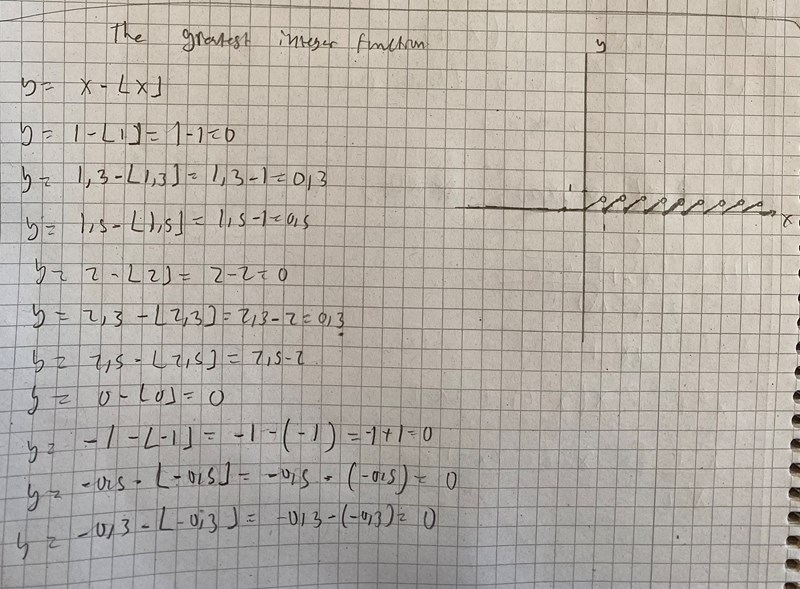 The greatest integer function
y = x - ⌊x⌋
y = 1 - ⌊1⌋ = 1-1=0
y = 1,3 - ⌊1,3⌋ = 1,3-1=0,3
y = 1,5 - ⌊1,5⌋ = 1,5-1=0,5
y = 2 - ⌊2⌋ = 2-2=0
y = 2,3 - ⌊2,3⌋ = 2,3-2=0,3
y = 2,5 - ⌊2,5⌋ = 2,5-2
y = 0 - ⌊0⌋ = 0
y = -1 - ⌊-1⌋ = -1-(-1) = -1+1=0
y = -0,5 - ⌊-0,5⌋ = -0,5 - (-0,5) = 0
y = -0,3 - ⌊-0,3⌋ = -0,3-(-0,3)= 0
y
1
x
1